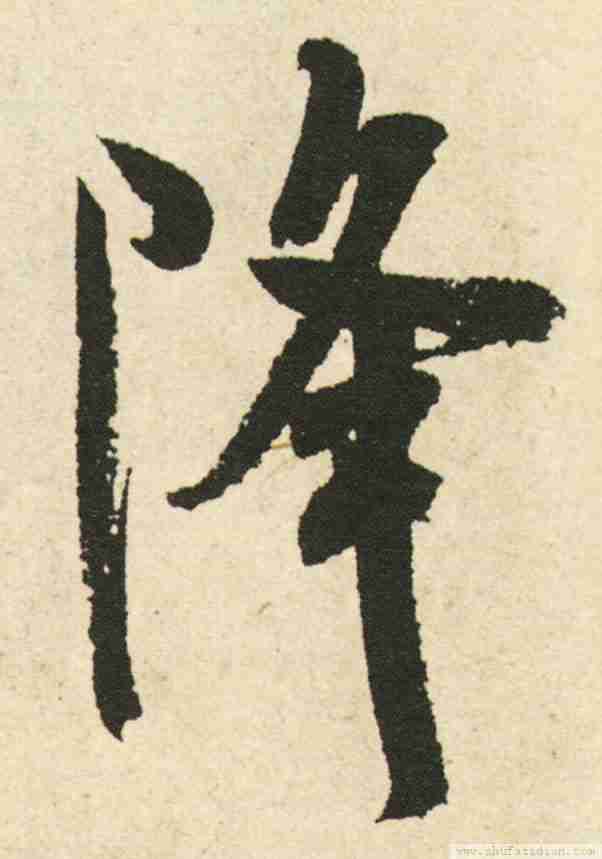 降
www.shufazidian.com